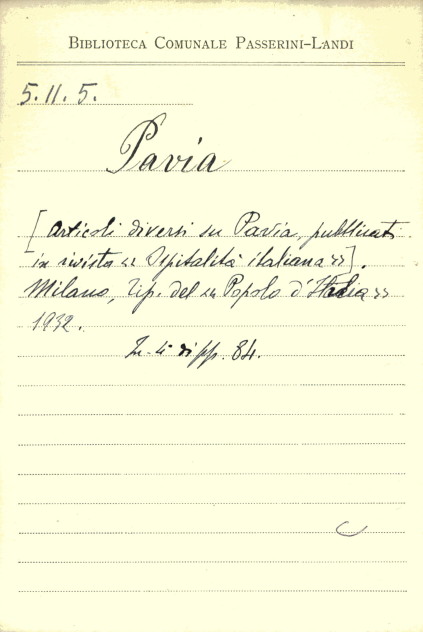 BIBLIOTECA COMUNALE PASSERINI-LANDI
5.11.5.
Pavia
[Articoli diversi su Pavia, pubblicati
in rivista « Ospitalità italiana »].
Milano, Tip. del « Popolo d'Italia »
1932.
In-4° di pp. 84.